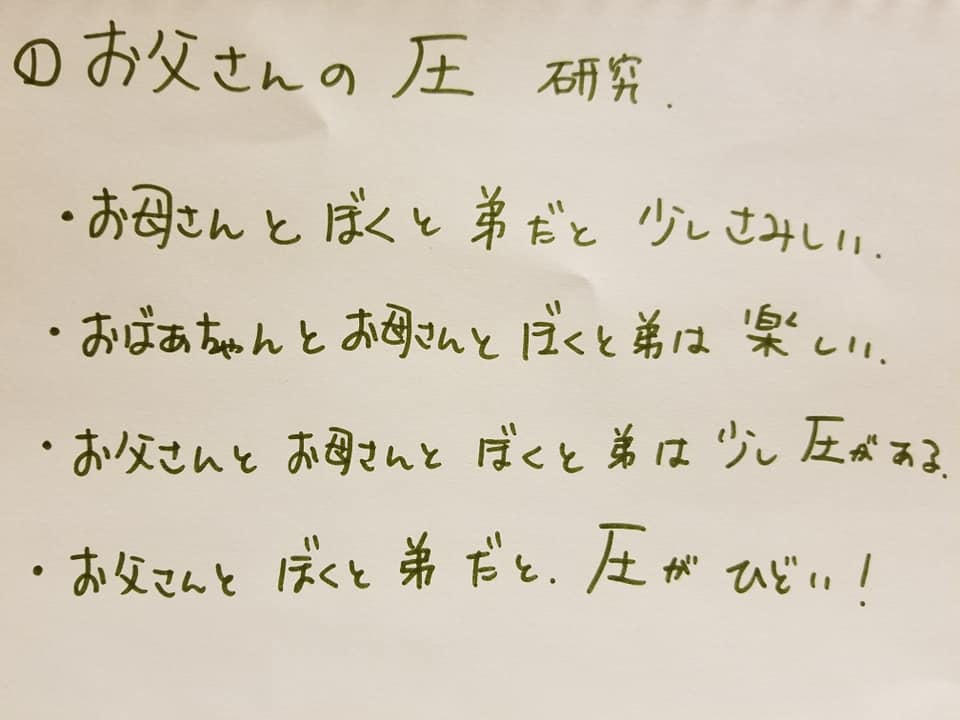 ① お父さんの 圧 研究.
・お母さん と ぼくと 弟だと 少しさみしい.
・おばあちゃんと お母さんと ぼくと 弟は 楽しい.
・お父さんと お母さんと ぼくと 弟は 少し 圧がある.
・お父さんと ぼくと 弟 だと. 圧が ひどい!